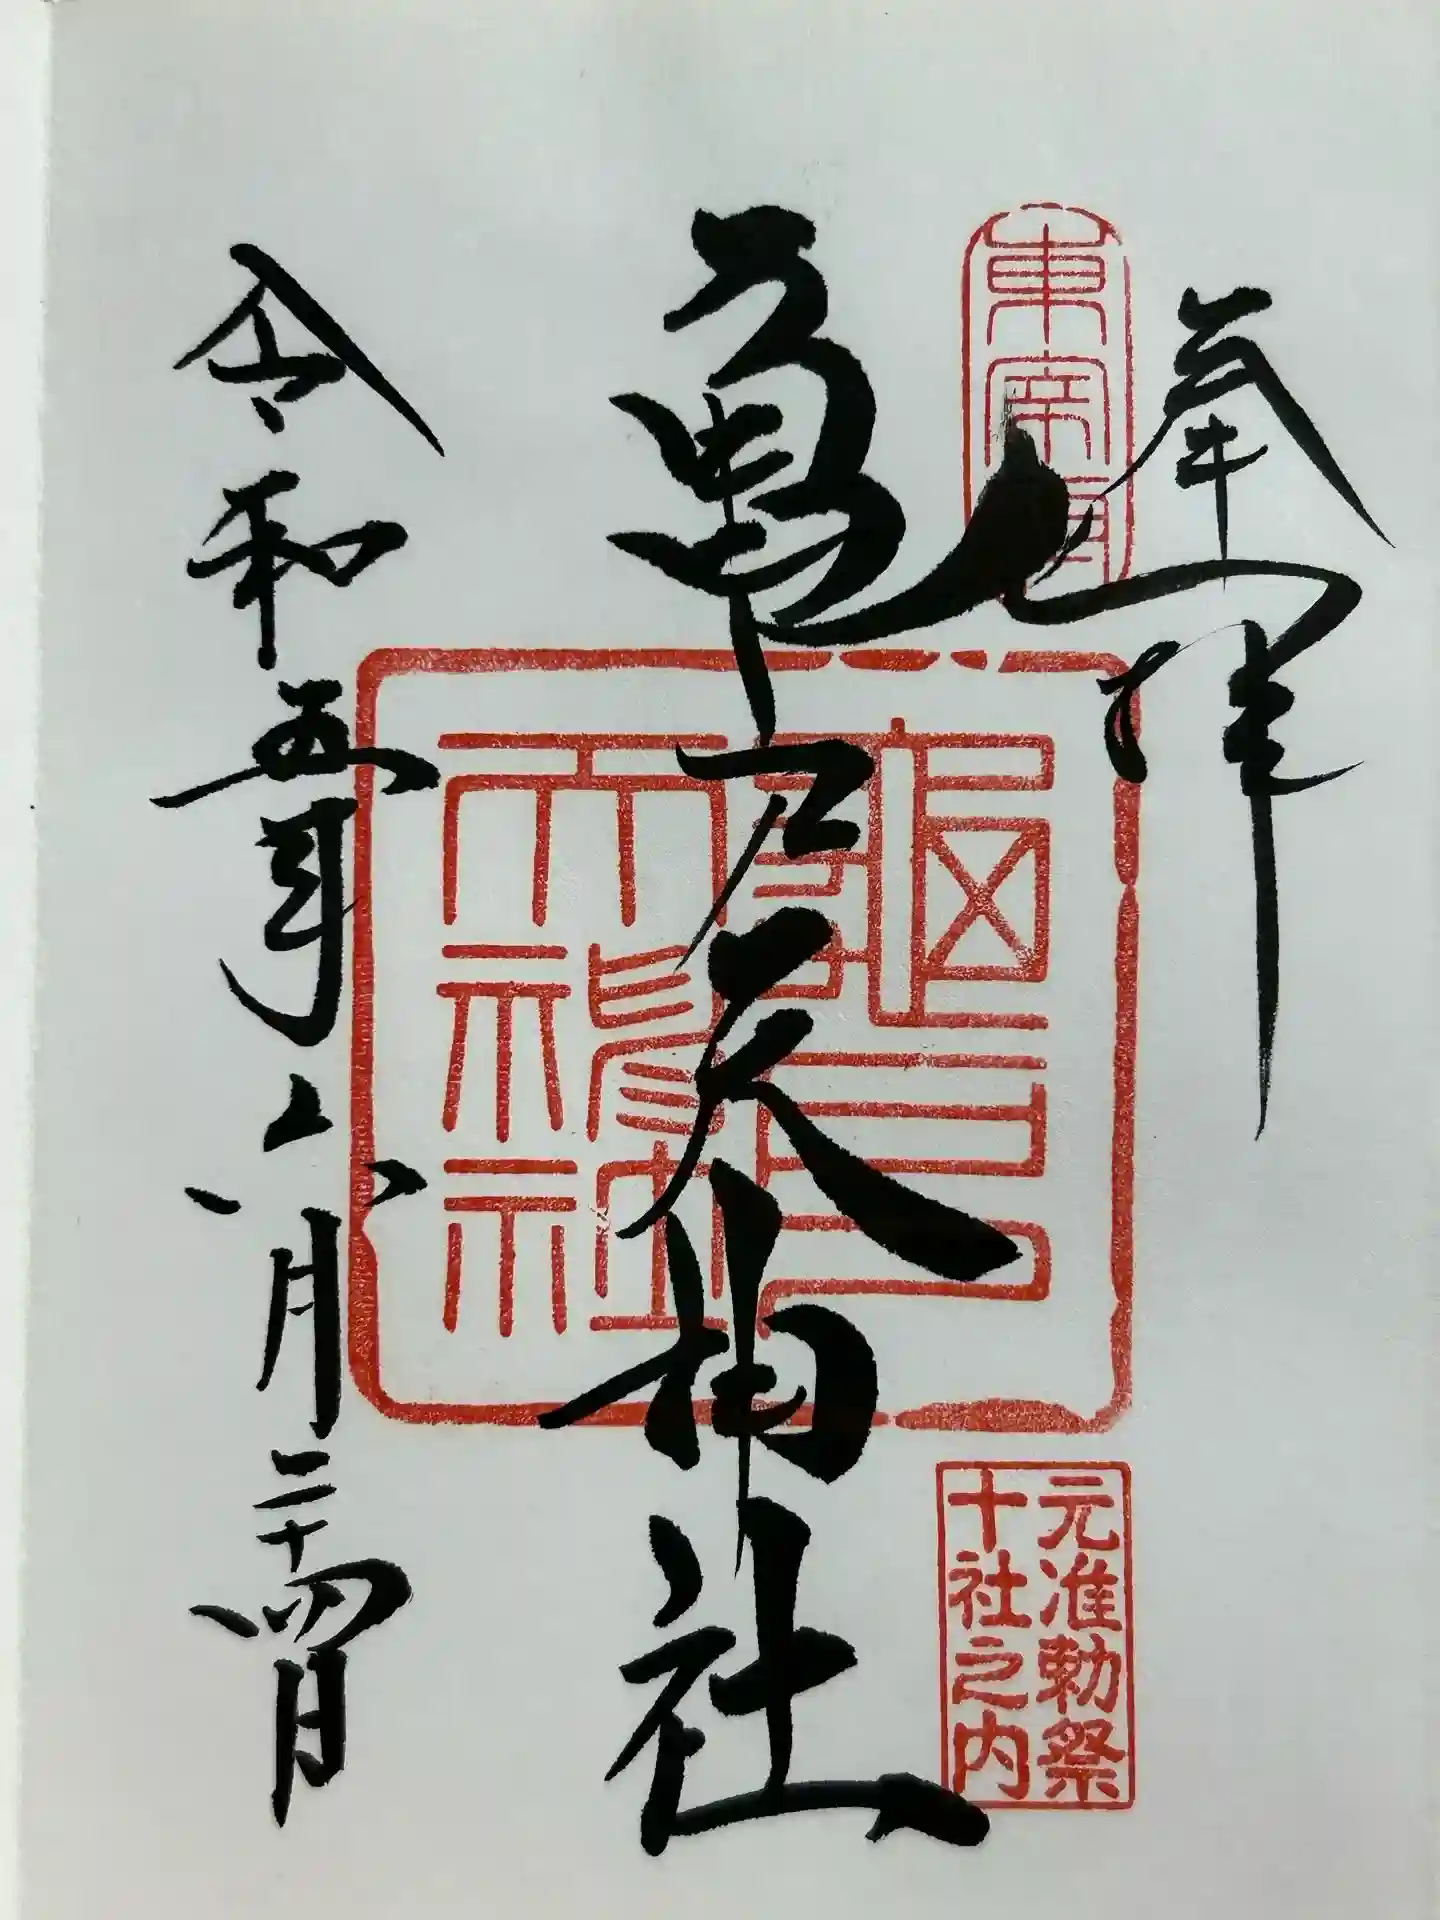 奉拝
東宰府
亀戸天神社
龜戸
天神社
元准勅祭
十社之内
令和五年六月二十四日